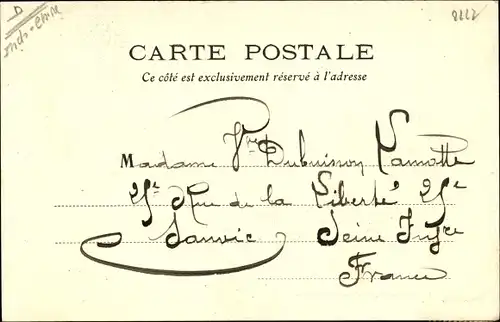 D
Indo-chine
2227
CARTE POSTALE
Ce côté est exclusivement réservé à l'adresse
Madame Vve Dubuisson Lamotte
25e Rue de la Liberté 25e
Sanvic Seine Infre
France